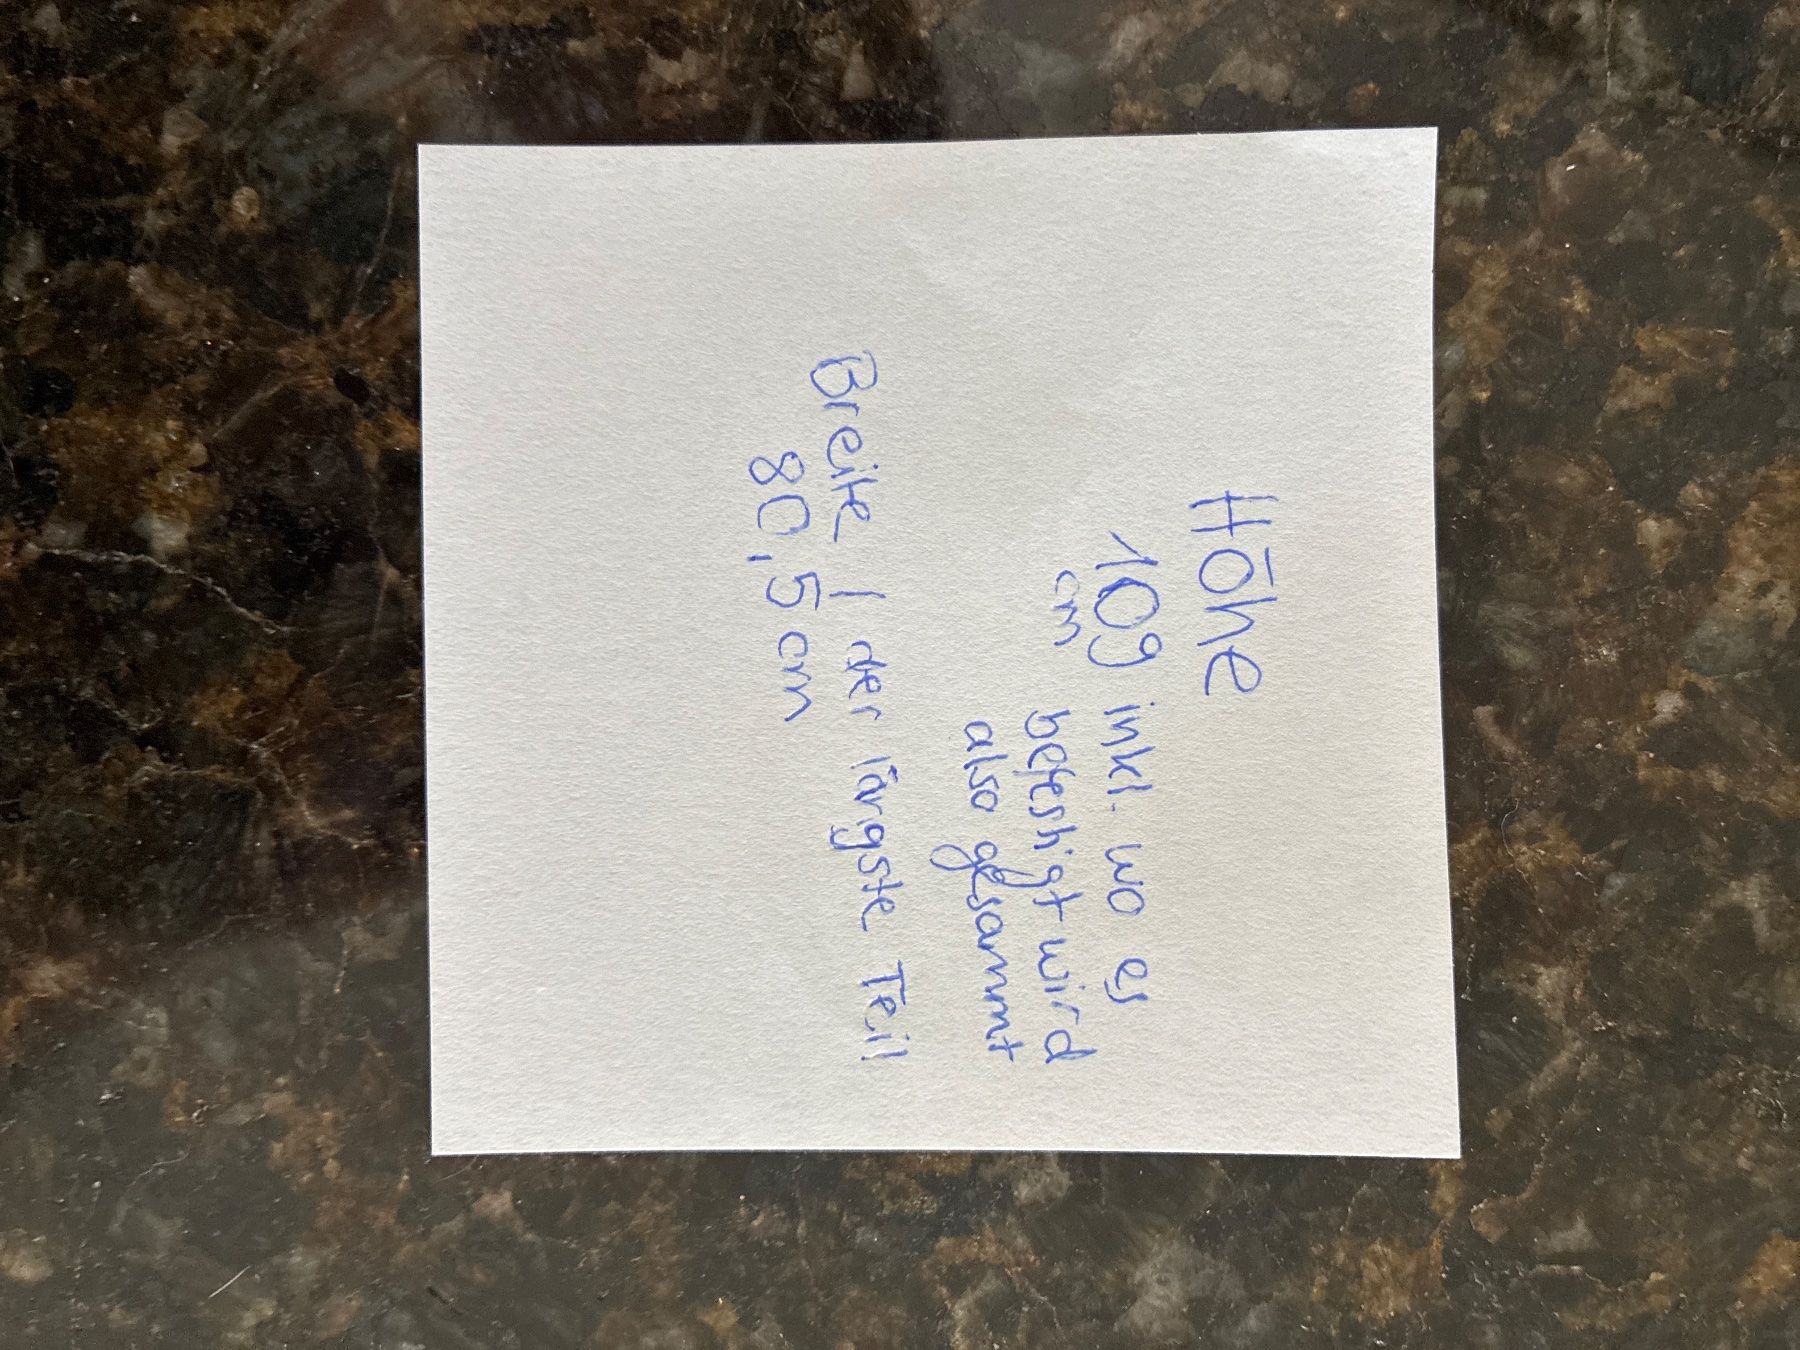 Höhe
109 inkl. wo es
cm befestigt wird
also gesammt
Breite / der längste Teil
80,5 cm